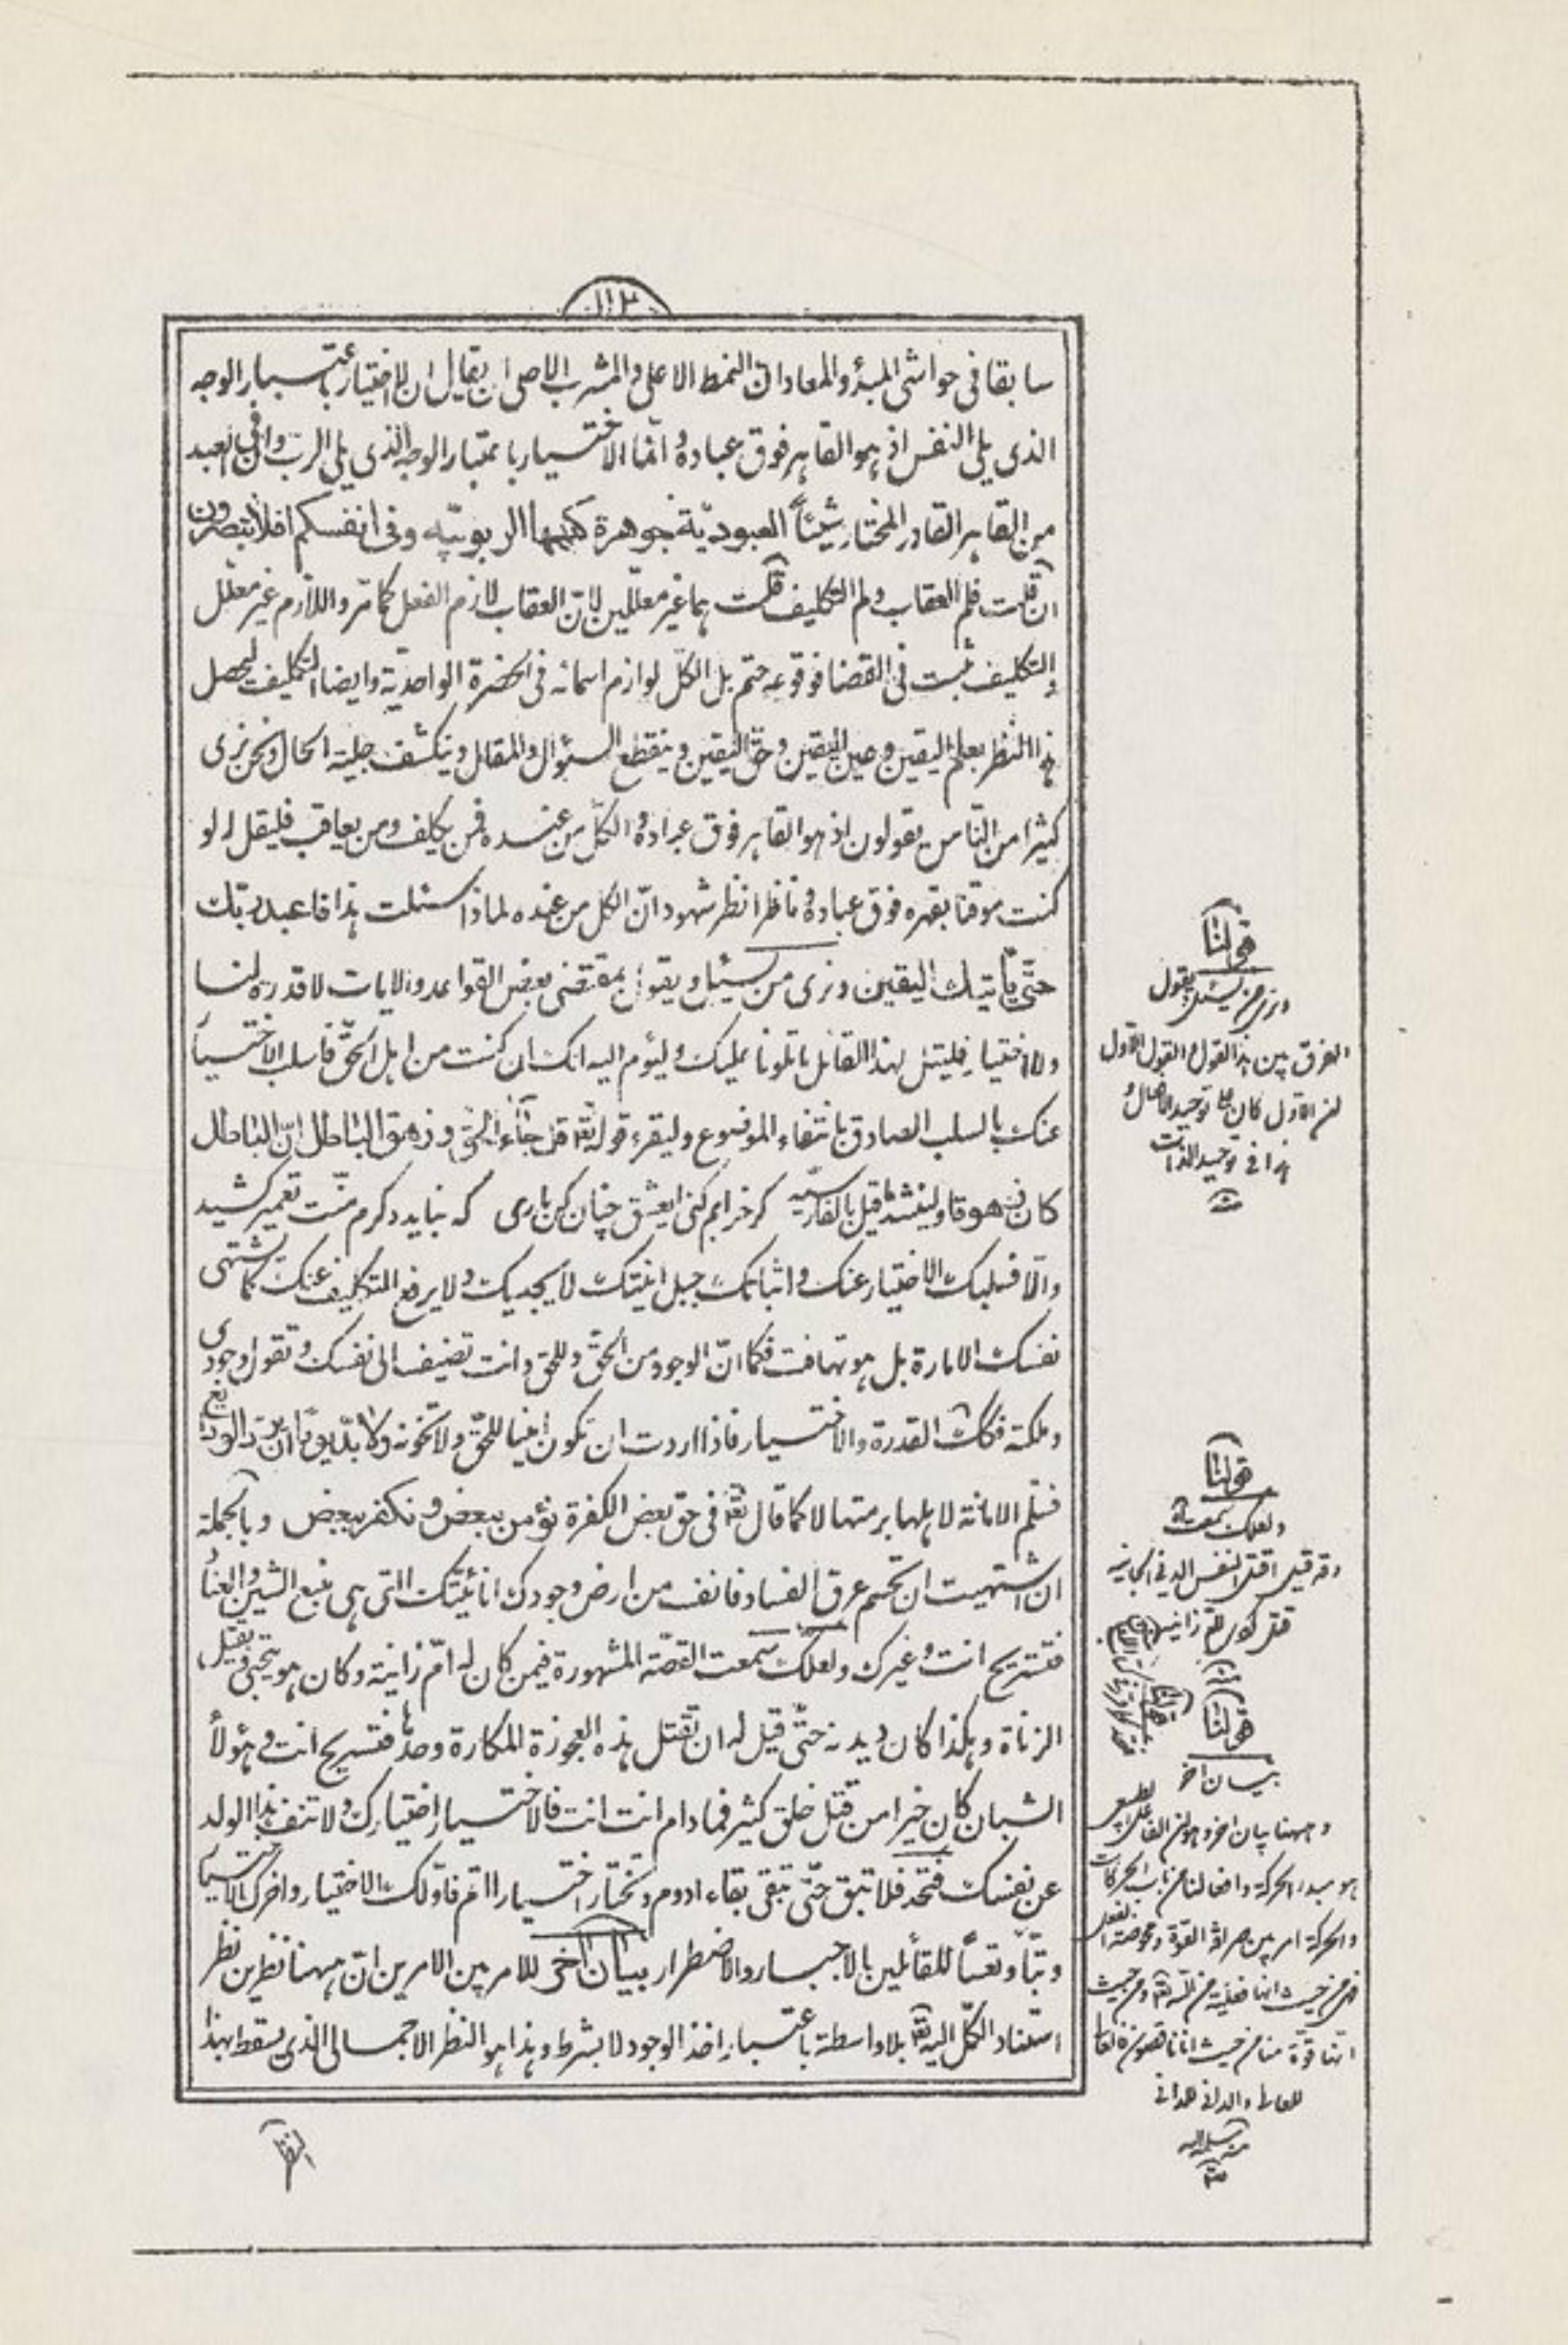 ١١٣
سابقا فى حواشى المبدؤ والمعاد ان النمط الاعلى والمشرب الاصلى ان يقال ان لا اختيار باعتبار الوجه
الذى يلى النفس اذ هو القاهر فوق عباده وانما الاختيار باعتبار الوجه الذى يلى الرب وان فى العبد
من القاهر القادر المختار شيئاً العبوديّة جوهرة كنهها الربوبيّه وفى انفسكم افلا تبصرون
ان قلت فلم العقاب ولم التكليف قلت هما غير معلّلين لانّ العقاب لازم الفعل كما مرّ واللازم غير معلّل
والتكليف ثبت فى القضا فوقوعه حتم بل الكلّ لوازم اسمائه فى الحضرة الواحديّة وايضا التكليف ليحصل
هذا النظر بعلم اليقين وعين اليقين وحقّ اليقين وينقطع السئوال والمقال وينكشف جليّة الحال ونحن نرى
كثيرا من النّاس يقولون اذ هو القاهر فوق عباده والكلّ من عنده فمن يكلف ومن يعاقب فليقل له لو
كنت موقنا بقهره فوق عباده وناظرا نظر شهود انّ الكل من عنده لماذا سئلت هذا فاعبد ربّك
حتّى ياتيك اليقين ونرى من يسئل ويقول بمقتضى بعض القواعد والايات لا قدرة لنا
ولا اختيار فليتل لهذا القائل ما تلونا عليك وليؤم اليه انك ان كنت من اهل الحقّ فاسلب الاختيار
عنك بالسلب الصادق بانتفاء الموضوع وليقرء قوله تعالى قل جاء الحق وزهق الباطل انّ الباطل
كان زهوقا ولينشد ما قيل بالفارسيّه كر خرابم كنى ايعشق چنان كن بارى كه نبايد دكرم منّت تعمير كشيد
والّا فسلبك الاختيار عنك واثباتك جبل انيّتك لا يجديك ولا يرفع التكليف عنك كما تشتهى
نفسك الامارة بل هو تهافت فكما انّ الوجود من الحقّ وللحق وانت تضيف الى نفسك وتقول وجودى
وملكته فكذلك القدرة والاختيار فاذا اردت ان تكون امينا للحقّ ولا تخونه ولا بدّ يوماً ان تردّ الودايع
فسلّم الامانة لاهلها برمتها لا كما قال تعالى فى حقّ بعض الكفرة نؤمن ببعض ونكفر ببعض وبالجملة
ان اشتهيت ان تحسم عرق الفساد فانف من ارض وجودك انانيّتك التى هى منبع الشين والعنأ
فتستريح انت وغيرك ولعلك سمعت القصّة المشهورة فيمن كان له امّ زانية وكان هو يقتل
الزناة وهكذا كان ديدنه حتّى قيل له ان تقتل هذه العجوزة المكارة وحدها فتستريح انت وهؤلأ
الشبان كان خيرا من قتل خلق كثير فما دام انت انت فالاختيار اختيارك ولا تنف هذا الولد
عن نفسك فتحد فلا تبق حتّى تبقى بقاء ادوم وتختار اختيارا اتم فاوّلك الاختيار واخرك الاختيار
وتبّا وتعساً للقائلين بالاجبار والاضطرار بيان اخر للامر بين الامرين انّ ههنا نظرين نظر
استناد الكلّ اليه تعالى بلا واسطة باعتبار اخذ الوجود لا بشرط وهذا هو النظر الاجمالى الذى يسقط بهذا
قولنا
ونرى من يسئل ويقول
الفرق بين هذا القول والقول الاول
ان الاول كان على توحيد الافعال و
هذا فى توحيد الذات
قولنا
ولعلك سمعت
وقد قيل اقتل النفس
قولنا
بيان اخر
وههنا بيان اخر وهو ان الفاعل الطبيعى
هو مبدء الحركة وافعالنا من باب الحركات
والحركة امر بين صرافة القوة ومحوضة الفعل
فمن حيث انها فعلية من الله تعالى ومن حيث
انها قوة منا
للعالى والدانى للدانى
منه سلمه الله